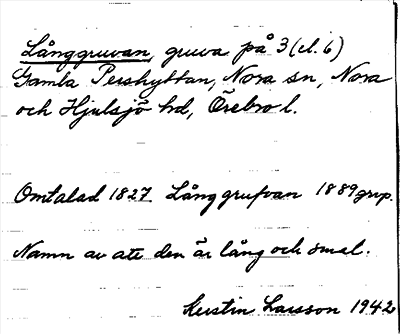 Långgruvan, gruva på 3 (el. 6)
Gamla Pershyttan, Nora sn, Nora
och Hjulsjö hd, Örebro l.
Omtalad 1827. Långgrufvan 1889 grup.
Namn av att den är lång och smal.
Kerstin Larsson 1942